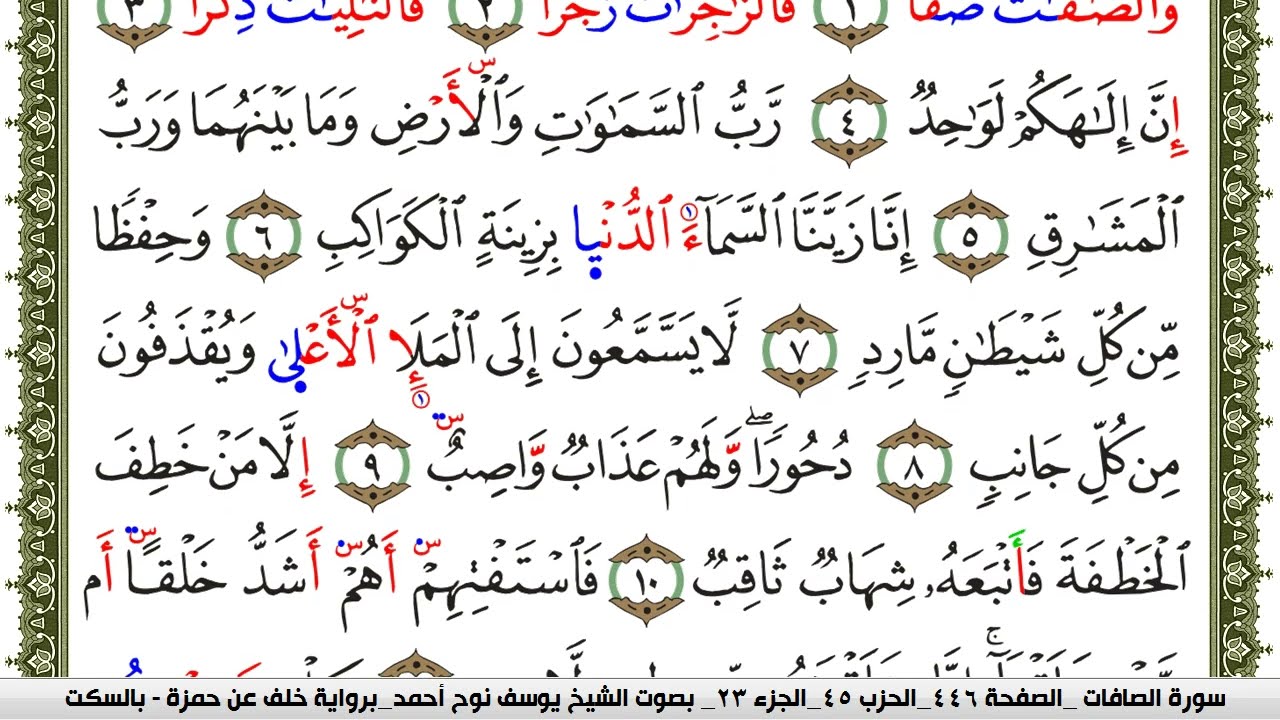 وَٱلصَّـٰٓفَّـٰتِ صَفًّا ١ فَٱلزَّٰجِرَٰتِ زَجْرًا ٢ فَٱلتَّـٰلِيَـٰتِ ذِكْرًا ٣
إِنَّ إِلَـٰهَكُمْ لَوَٰحِدٌ ٤ رَّبُّ ٱلسَّمَـٰوَٰتِ وَٱلْأَرْضِ وَمَا بَيْنَهُمَا وَرَبُّ
ٱلْمَشَـٰرِقِ ٥ إِنَّا زَيَّنَّا ٱلسَّمَآءَ ٱلدُّنْيٜا بِزِينَةٍ ٱلْكَوَاكِبِ ٦ وَحِفْظًا
مِّن كُلِّ شَيْطَـٰنٍ مَّارِدٍ ٧ لَّا يَسَّمَّعُونَ إِلَى ٱلْمَلَإِ ٱلْأَعْلٜىٰ وَيُقْذَفُونَ
مِن كُلِّ جَانِبٍ ٨ دُحُورًا ۖ وَّلَهُمْ عَذَابٌ وَّاصِبٌ ٩ إِلَّا مَنْ خَطِفَ
ٱلْخَطْفَةَ فَأَتْبَعَهُۥ شِهَابٌ ثَاقِبٌ ١٠ فَٱسْتَفْتِهِمْ أَهُمْ أَشَدُّ خَلْقًا أَم
سورة الصافات _الصفحة ٤٤٦_الحزب ٤٥_الجزء ٢٣_ بصوت الشيخ يوسف نوح أحمد_برواية خلف عن حمزة - بالسكت